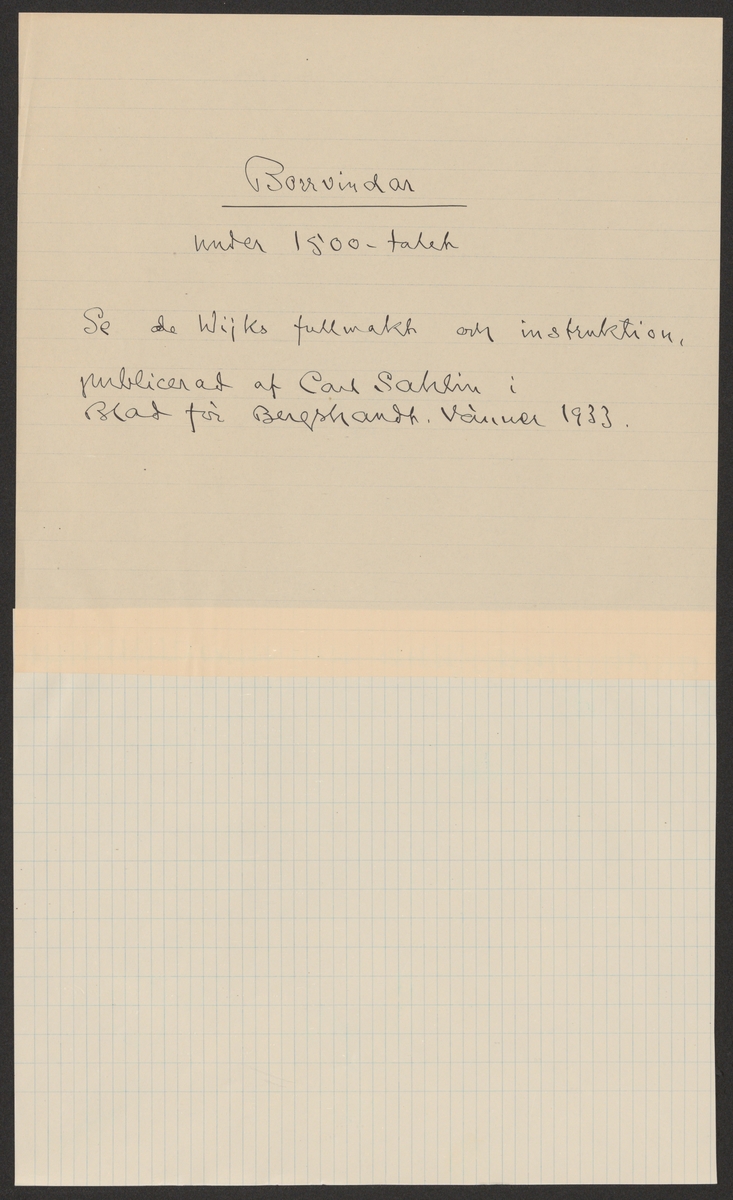 Borrvindar
under 1500-talet
Se de Wijks fullmakt och instruktion,
publicerad af Carl Sahlin i
Blad för Bergshandt. Vänner 1933.